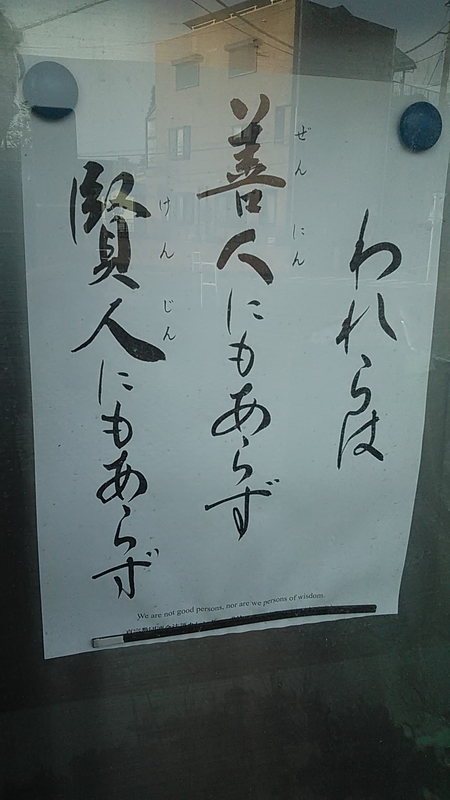 われらは
ぜんにん
善人にもあらず
けんじん
賢人にもあらず
We are not good persons, nor are we persons of wisdom.